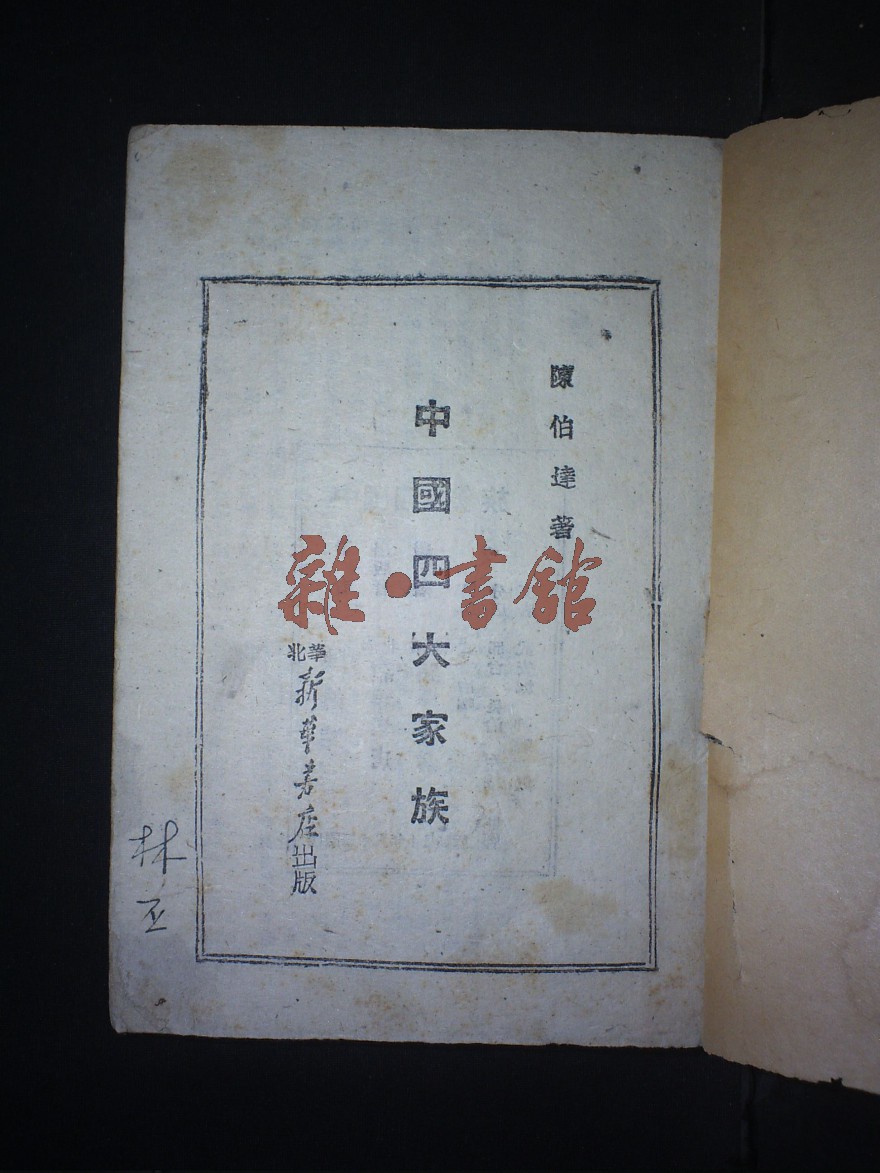 陳伯達著
中國四大家族
華北
新華書店出版
雜·書館
林